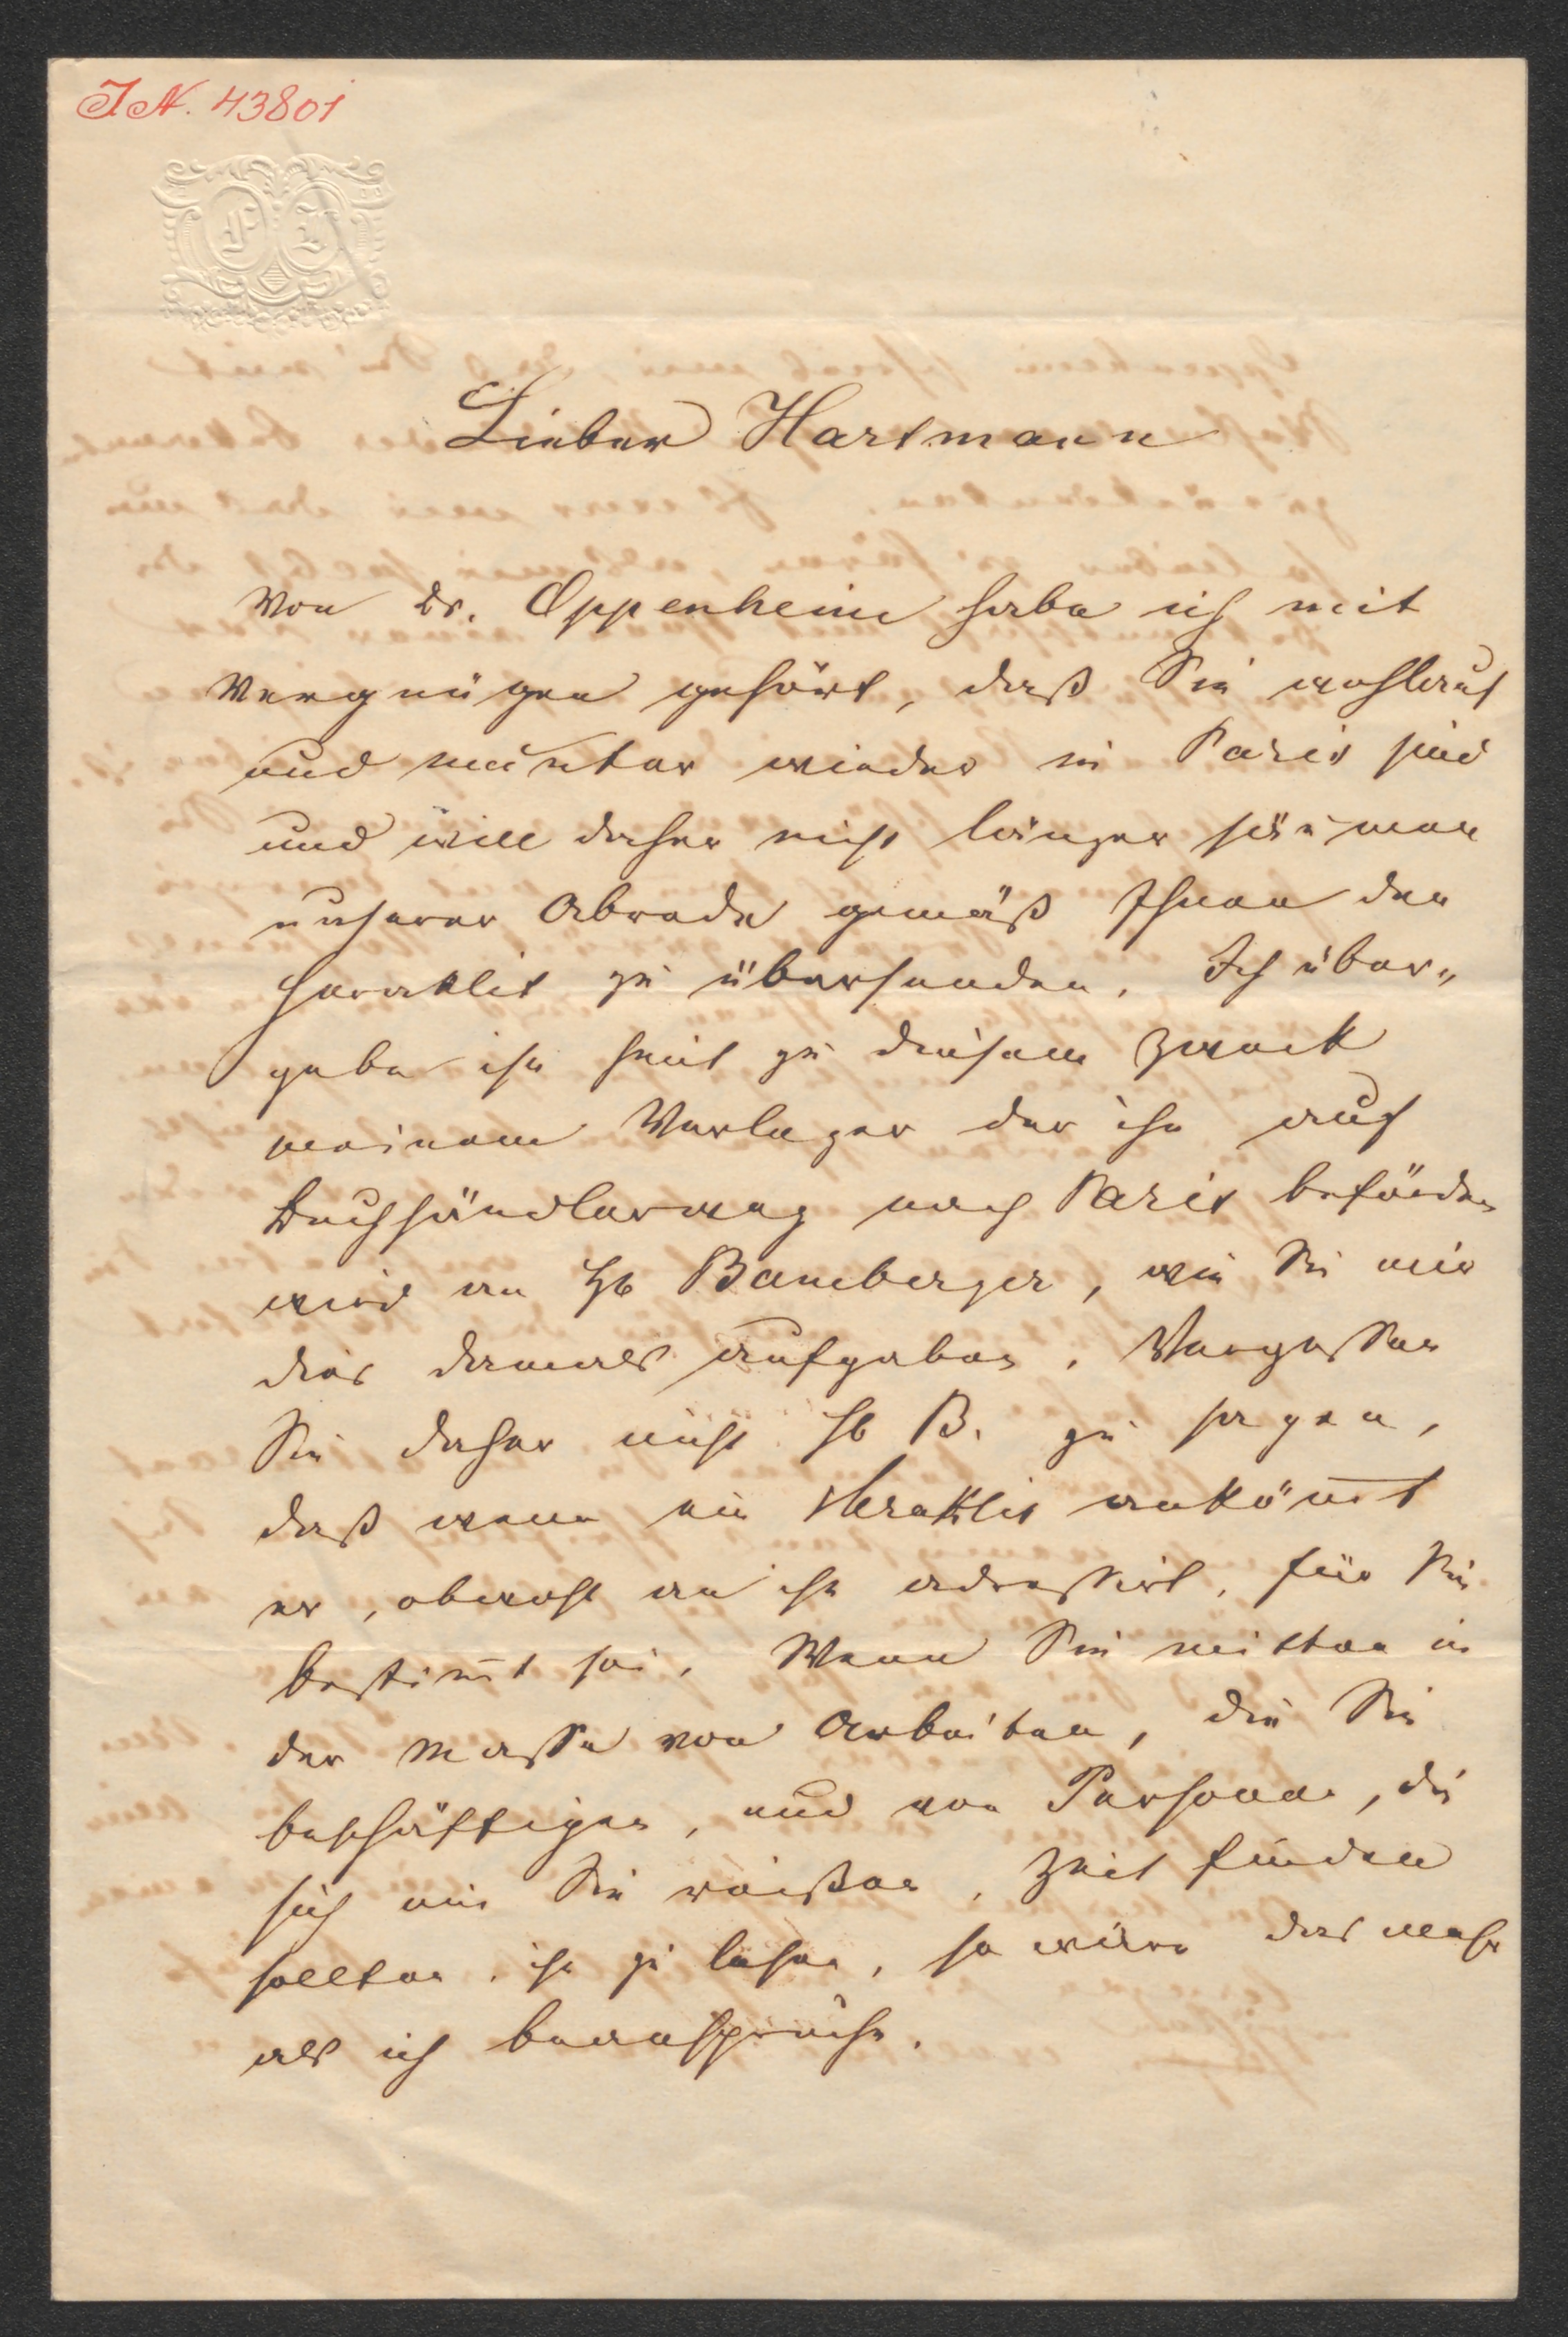 I.N. 43801
F L
Lieber Hartmann
Von Dr. Oppenheim habe ich mit
Vergnügen gehört, daß Sie wohlauf
und munter wieder in Paris sind
und will daher nicht länger säumen
unserer Abrede gemäß Ihnen den
Heraklit zu übersenden. Ich über„
gebe ihn heut zu diesem Zweck
meinem Verleger der ihn auf
Buchhändlerweg nach Paris befördern
wird an H Bamberger, wie Sie mir
dies damals aufgaben. Vergessen
Sie daher nicht H B. zu sagen,
daß wenn ein Heraklit ankom̅t
er, obwohl an ihn adressirt, für Sie
bestim̅t sei. Wenn Sie mitten in
der Masse von Arbeiten, die Sie
beschäftigen, und von Personen, die
sich um Sie reißen, Zeit finden
sollten, ihn zu lesen, so wäre das mehr
als ich beanspruche.